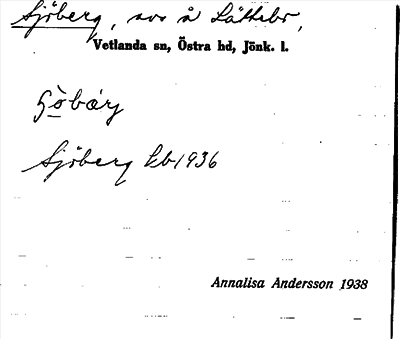 Sjöberg, avs å Lättebo,
Vetlanda sn, Östra hd, Jönk. l.
Sjöberg kb 1936
Annalisa Andersson 1938